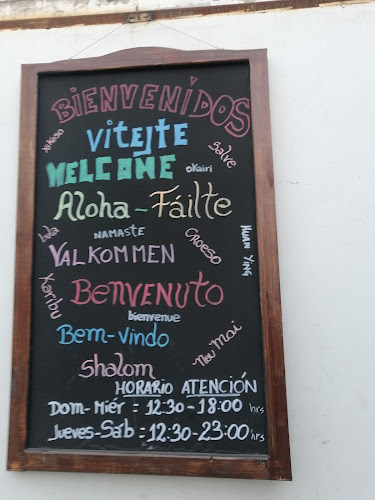 BIENVENIDOS
xikeso
VITEJTE
Salve
WELCOME
okairi
Aloha - Fáilte
bula
NAMASTE
Croeso
Huan Ying
VALKOMMEN
Karibu
BENVENUTO
bienvenue
Bem-vindo
Neu Mai
Shalom
HORARIO ATENCIÓN
Dom-Miér = 12:30 - 18:00 hrs
Jueves-Sáb = 12:30-23:00 hrs